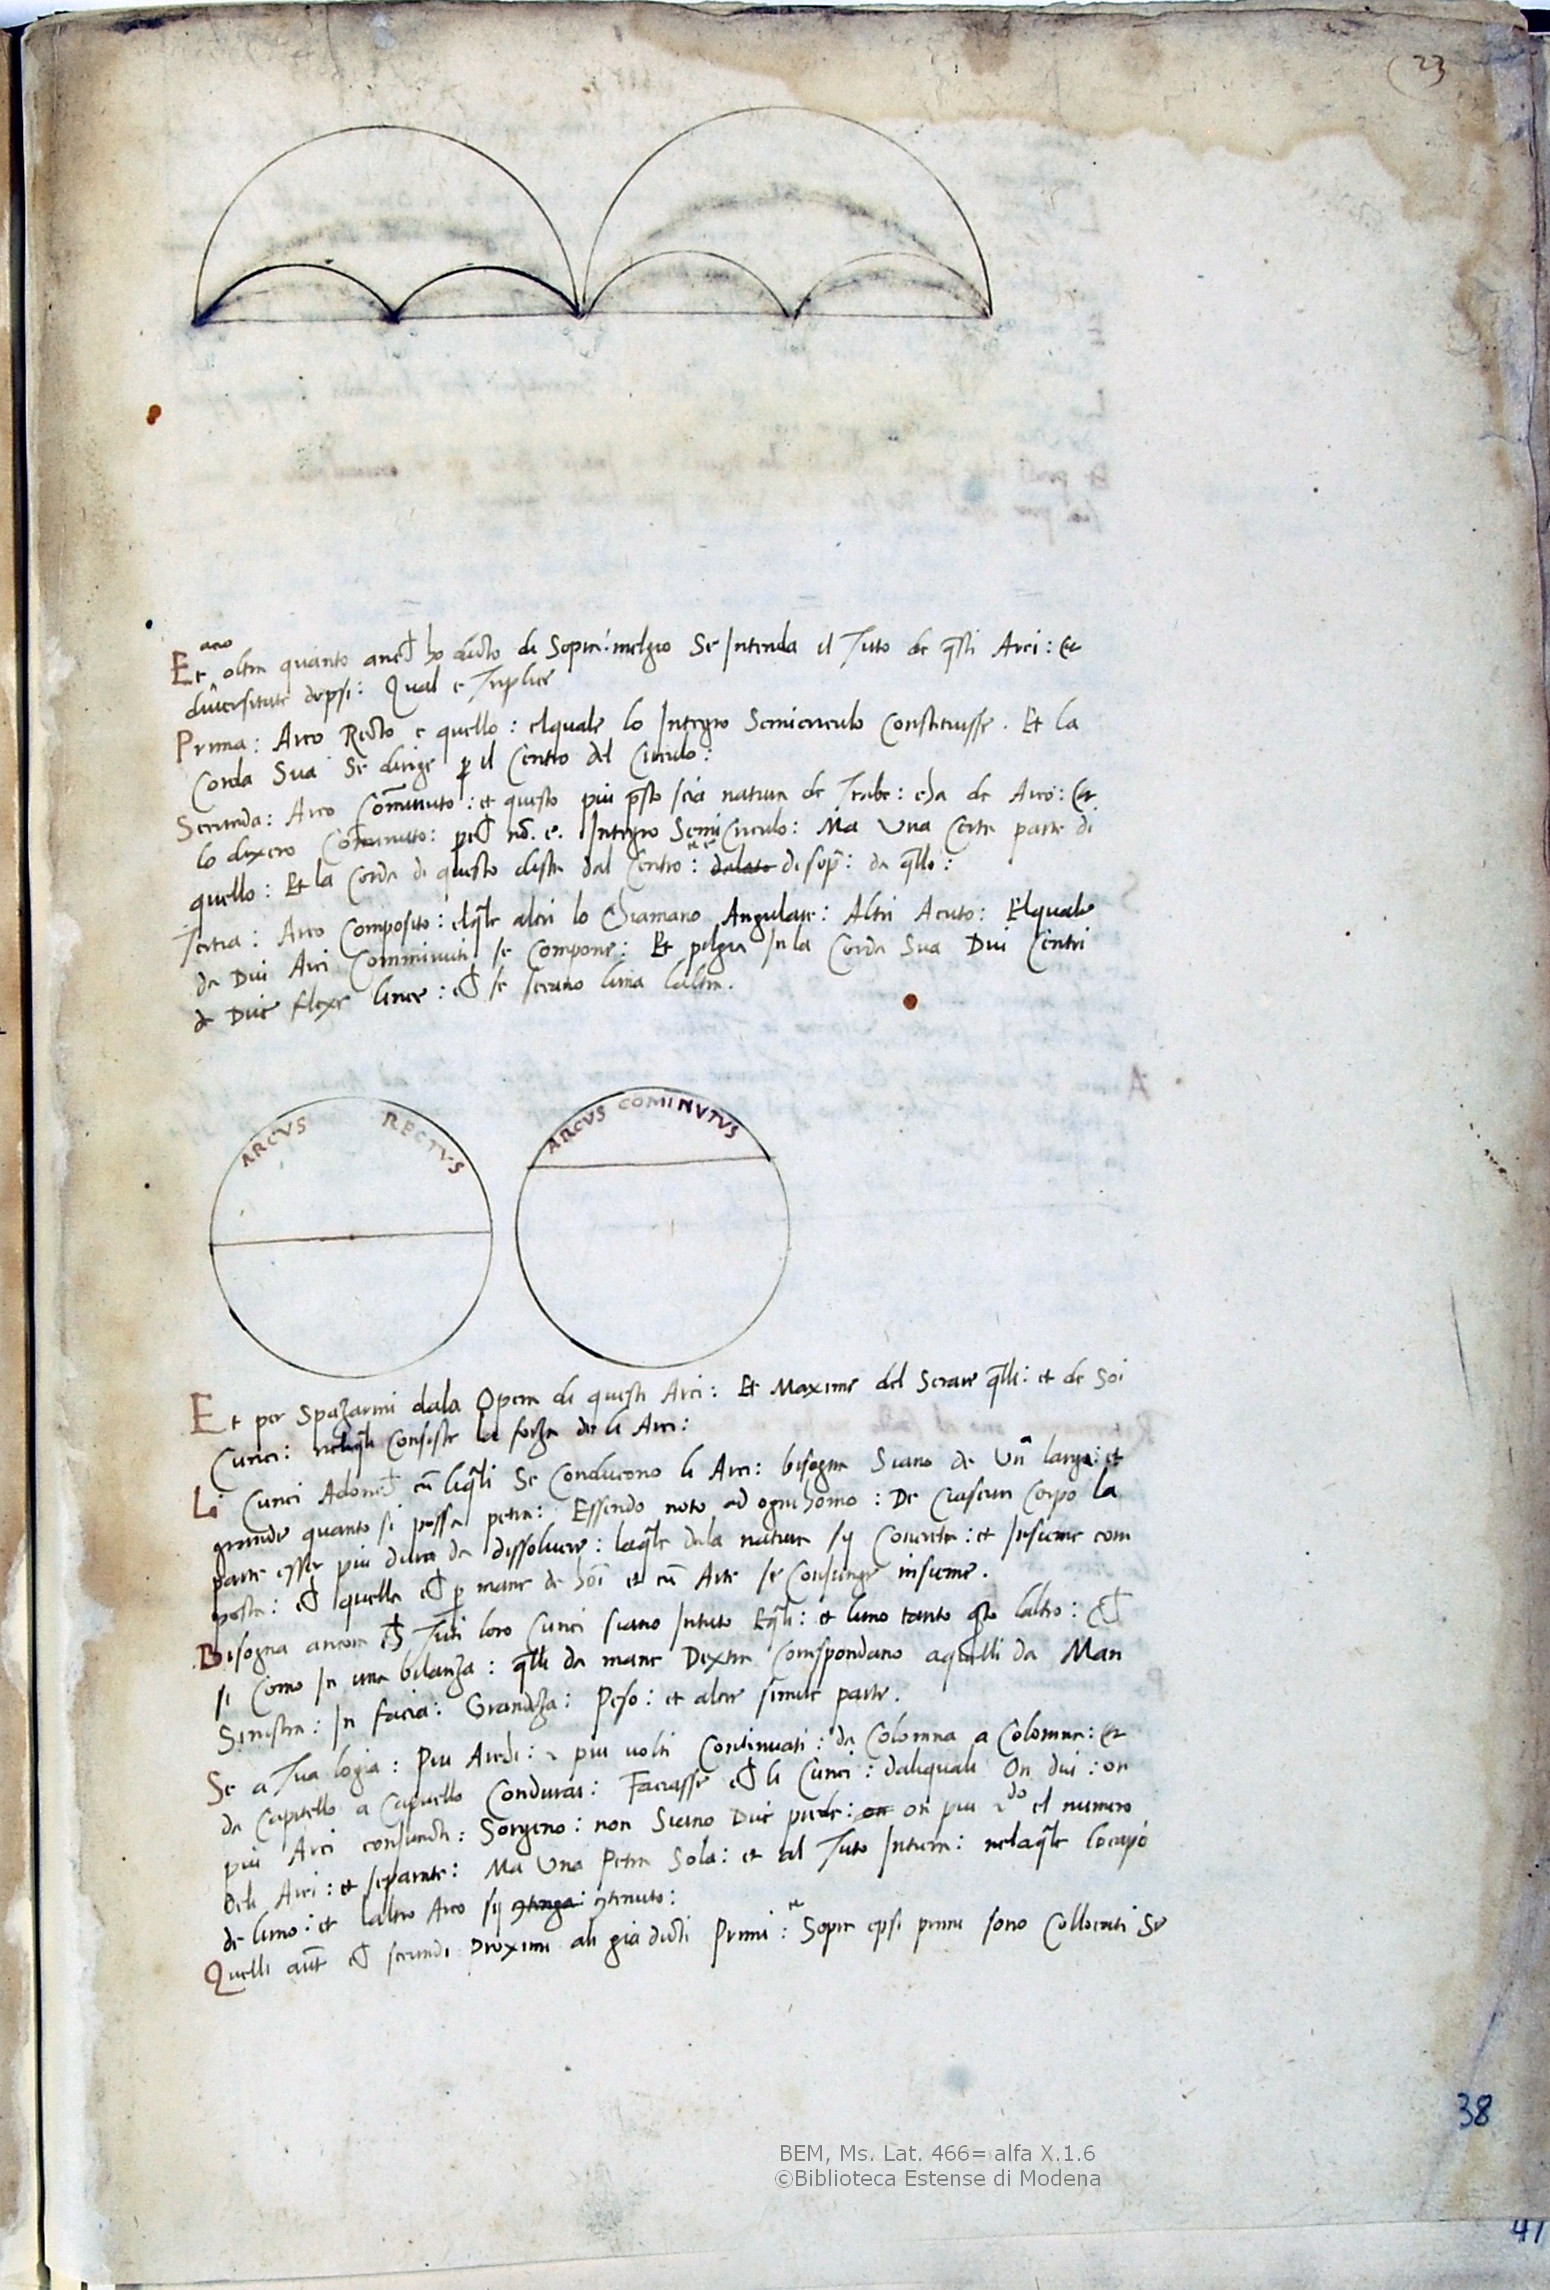 23
anco
Et oltra quanto anchͦ ho dicto di Sopra: melgio Se Intenda il Tuto de q̃sti Arci: et
diversitate depsi: Qual e Triplice
Prima: Arco Recto e quello: elquale lo Integro Semicirculo Constituisse. Et la
Corda Sua Se dirige ꝑ il Centro del Circulo:
Secunda: Arco Cominuto: et questo piu p̃sto scia natura de Trabe: cha de Arco: et
lo dixero Cominuto: perche nō. e. Integro SemiCirculo: Ma Una Certa parte di
quello: Et la Corda di questo dista dal Centro: dalato di sop̃: da q̃llo:
Tertia: Arco Composito: elq̃le altri lo Chiamano Angulare: Altri Acuto: Elquale
da Dui Arci Comminuti se Compone: Et pilgia In la Corda Sua Dui Centri
de Due flexe linee: che se secano luna laltra.
ARCVS RECTVS
ARCVS COMINVTVS
Et per Spazarmi dala Opera di questi Arci: Et Maxime del Serare q̃lli: et de Soi
Cunei: neliq̃li Consiste la forza de li Arci:
Li Cunei Adonche cū liq̃li Se Conducono li Arci: bisogna Siano de Una larga: et
grande quanto si possa petra: Essendo noto ad ogni homo: De Ciascun Corpo la
parte esser piu dura da dissolvere: laq̃le dala natura sij Concreta: et Insieme com
posta: che quella che ꝑ mane de hōi et cū Arte se Coniunge insieme.
Bisogna ancora che Tuti loro Cunei siano Intuto Eq̃li: et luno tanto q̃to laltro: Che
si Como In una bilanza: q̃lli da mane Dextra Corispondano aquelli da Man
Sinistra: In facia: Grandeza: Peso: et altre simile parte.
Se a Tua logia: Piu Arci: piu volti Continuati: da Colomna a Colomna: et
da Capitello a Capitello Condurai: Faciasse che li Cunei: daliquali On dui: on
piu Arci coniuncti: Sorgeno: non Siano Due piede: on on piu 2do el numero
deli Arci: et separate: Ma Una Petra Sola: et al Tuto Intiera: nelaq̃le lo capo
de luno: et laltro Arco sij ꝯtenga: ꝯtenuto:
Quelli aut̃ che secundi Proximi ali gia dicti Primi: Sopra epsi primi sono Collocati Se
38
41
BEM, Ms. Lat. 466= alfa X.1.6
©Biblioteca Estense di Modena